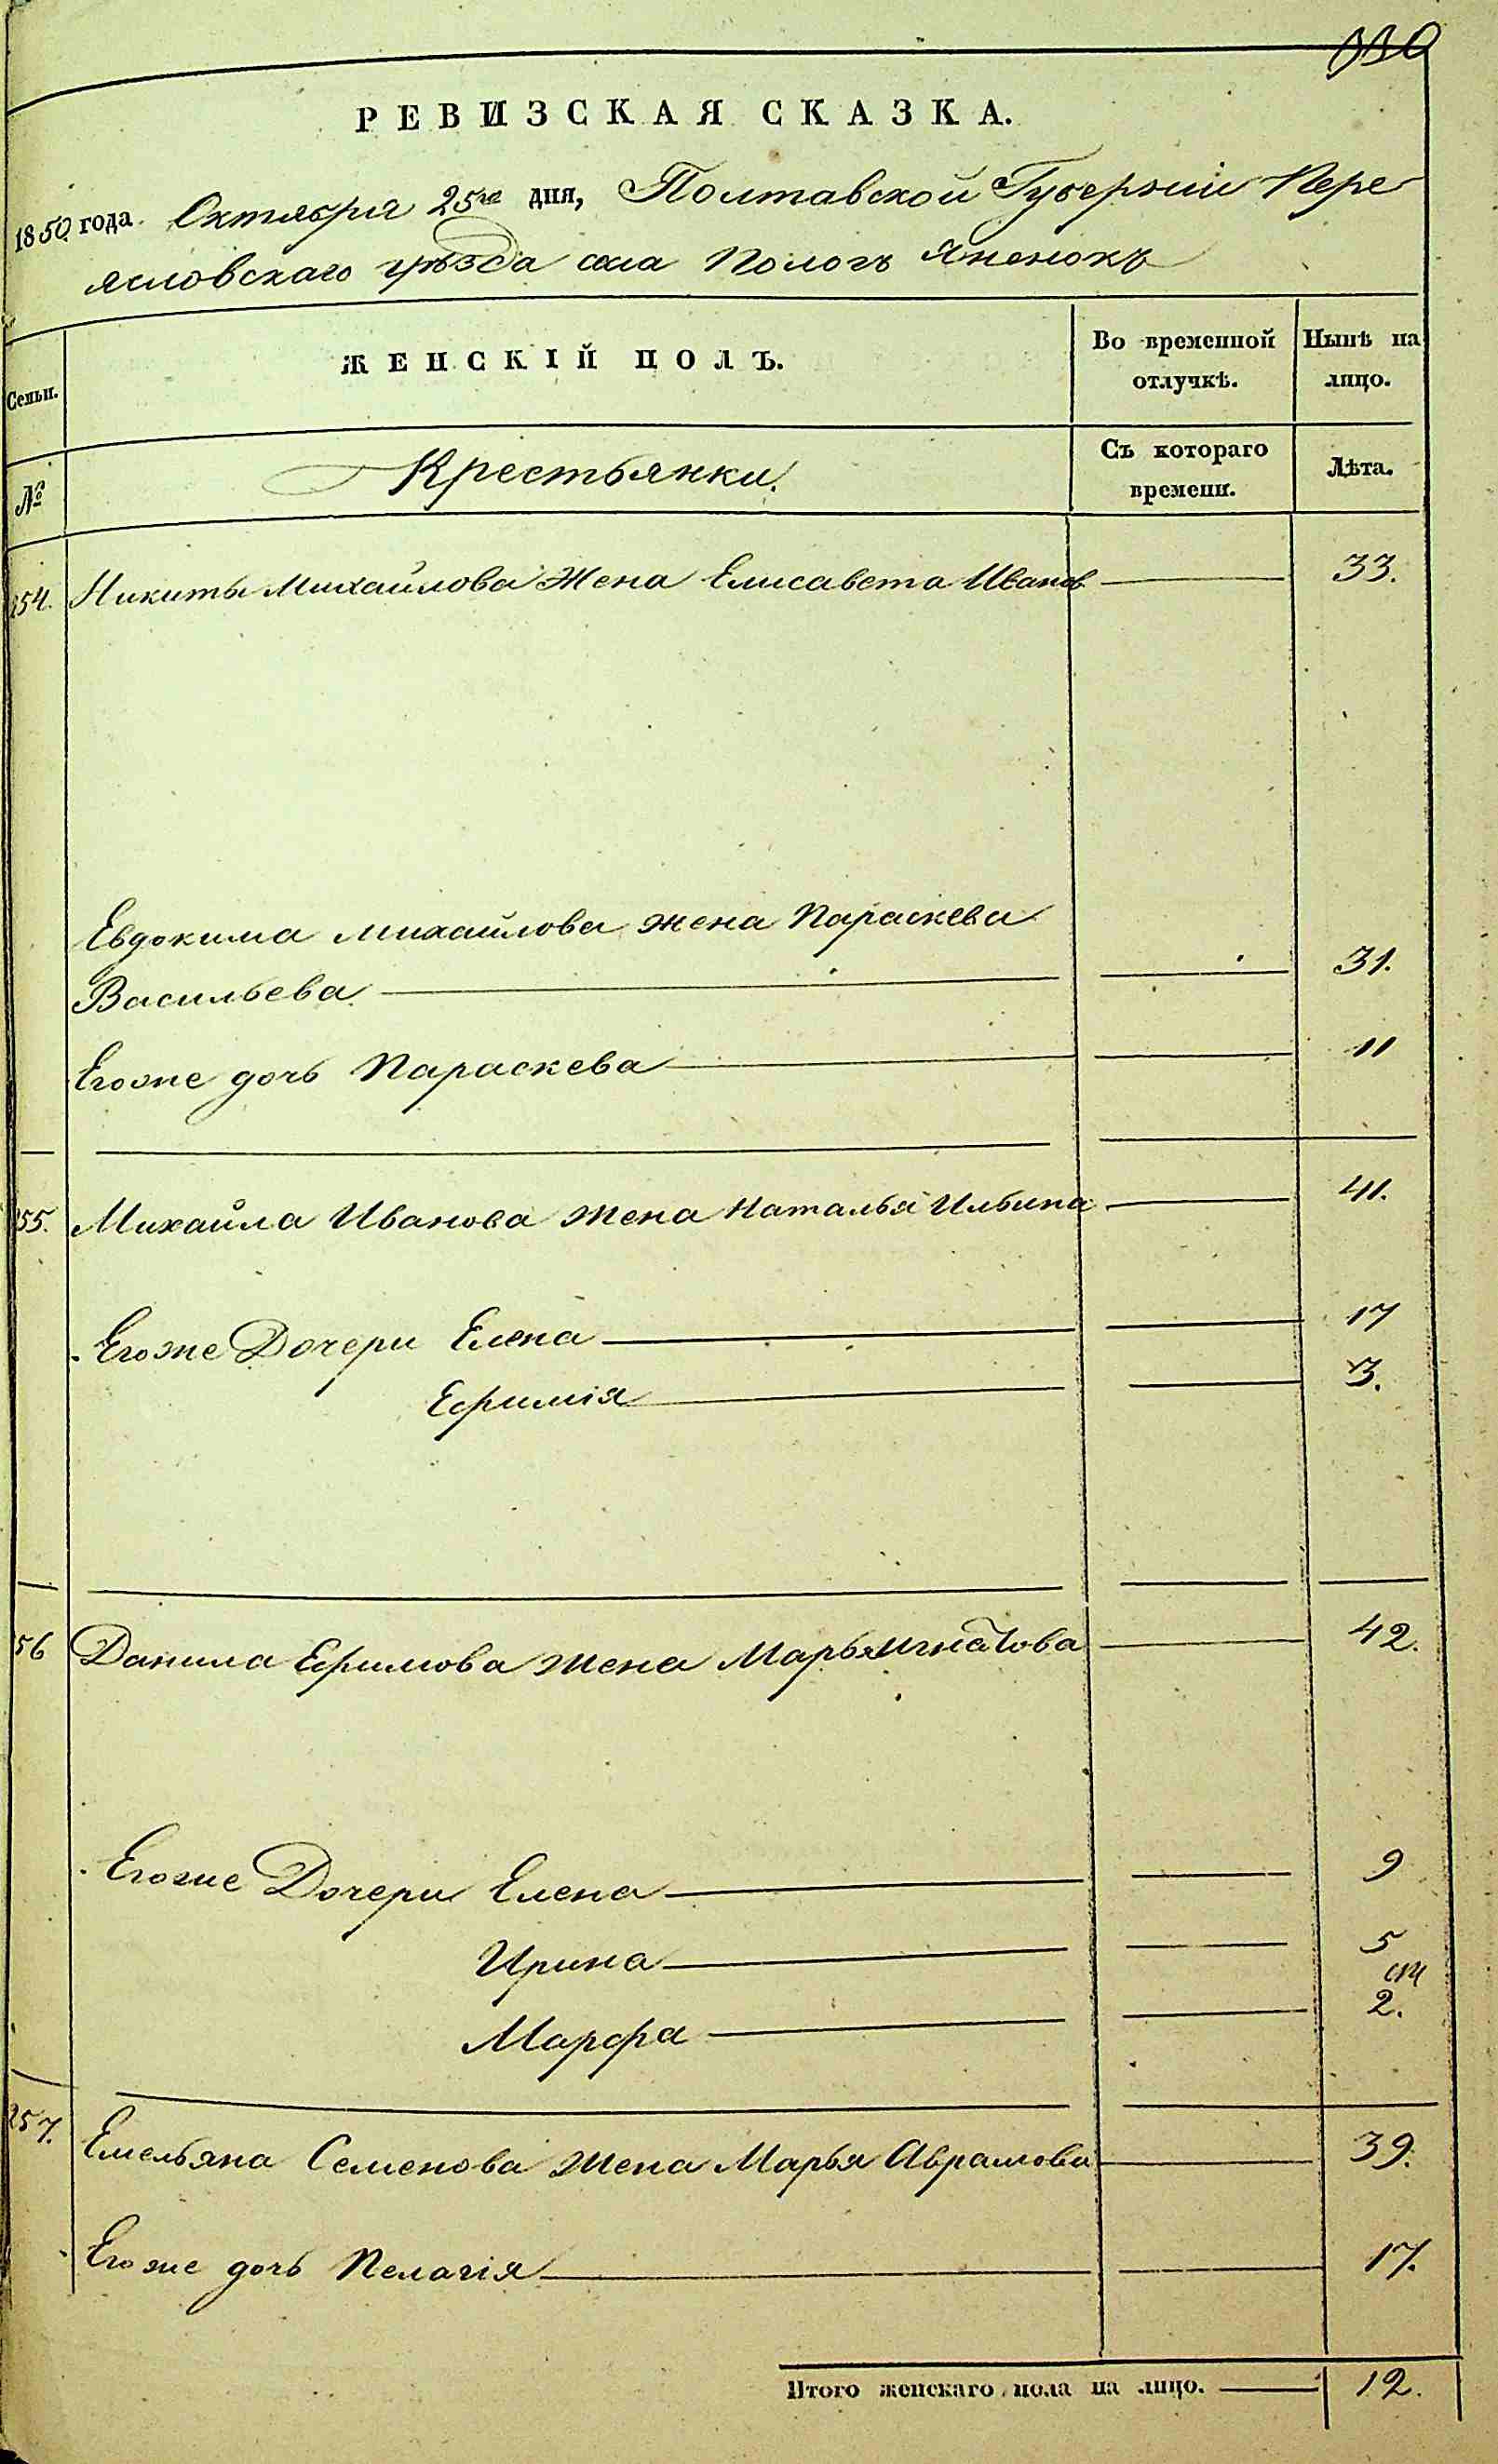 330
РЕВИЗСКАЯ СКАЗКА.
1850 года Октября 25го дня, Полтавской Губерніи Пере
яславскаго уѣзда села Пологъ Яненокъ
Семьи. ЖЕНСКІЙ ПОЛЪ. Во временной отлучкѣ. Нынѣ на лицо.
№ Крестьянки. Съ котораго времени. Лѣта.
254. Никиты Михайлова Жена Елисавета Иванов 33.
Евдокима Михайлова жена Параскева
Васильева 31.
Егоже дочь Параскева 11
255. Михайла Иванова жена Наталья Ильина 41.
Егоже Дочери Елена 17
Ефимія 3.
256 Данила Ефимова жена Марья Игнатова 42.
Егоже Дочери Елена 9
Ирина 5
Марфа 2.
257. Емельяна Семенова жена Марья Аврамова 39.
Егоже дочь Пелагія 17.
Итого женскаго пола на лицо. 12.